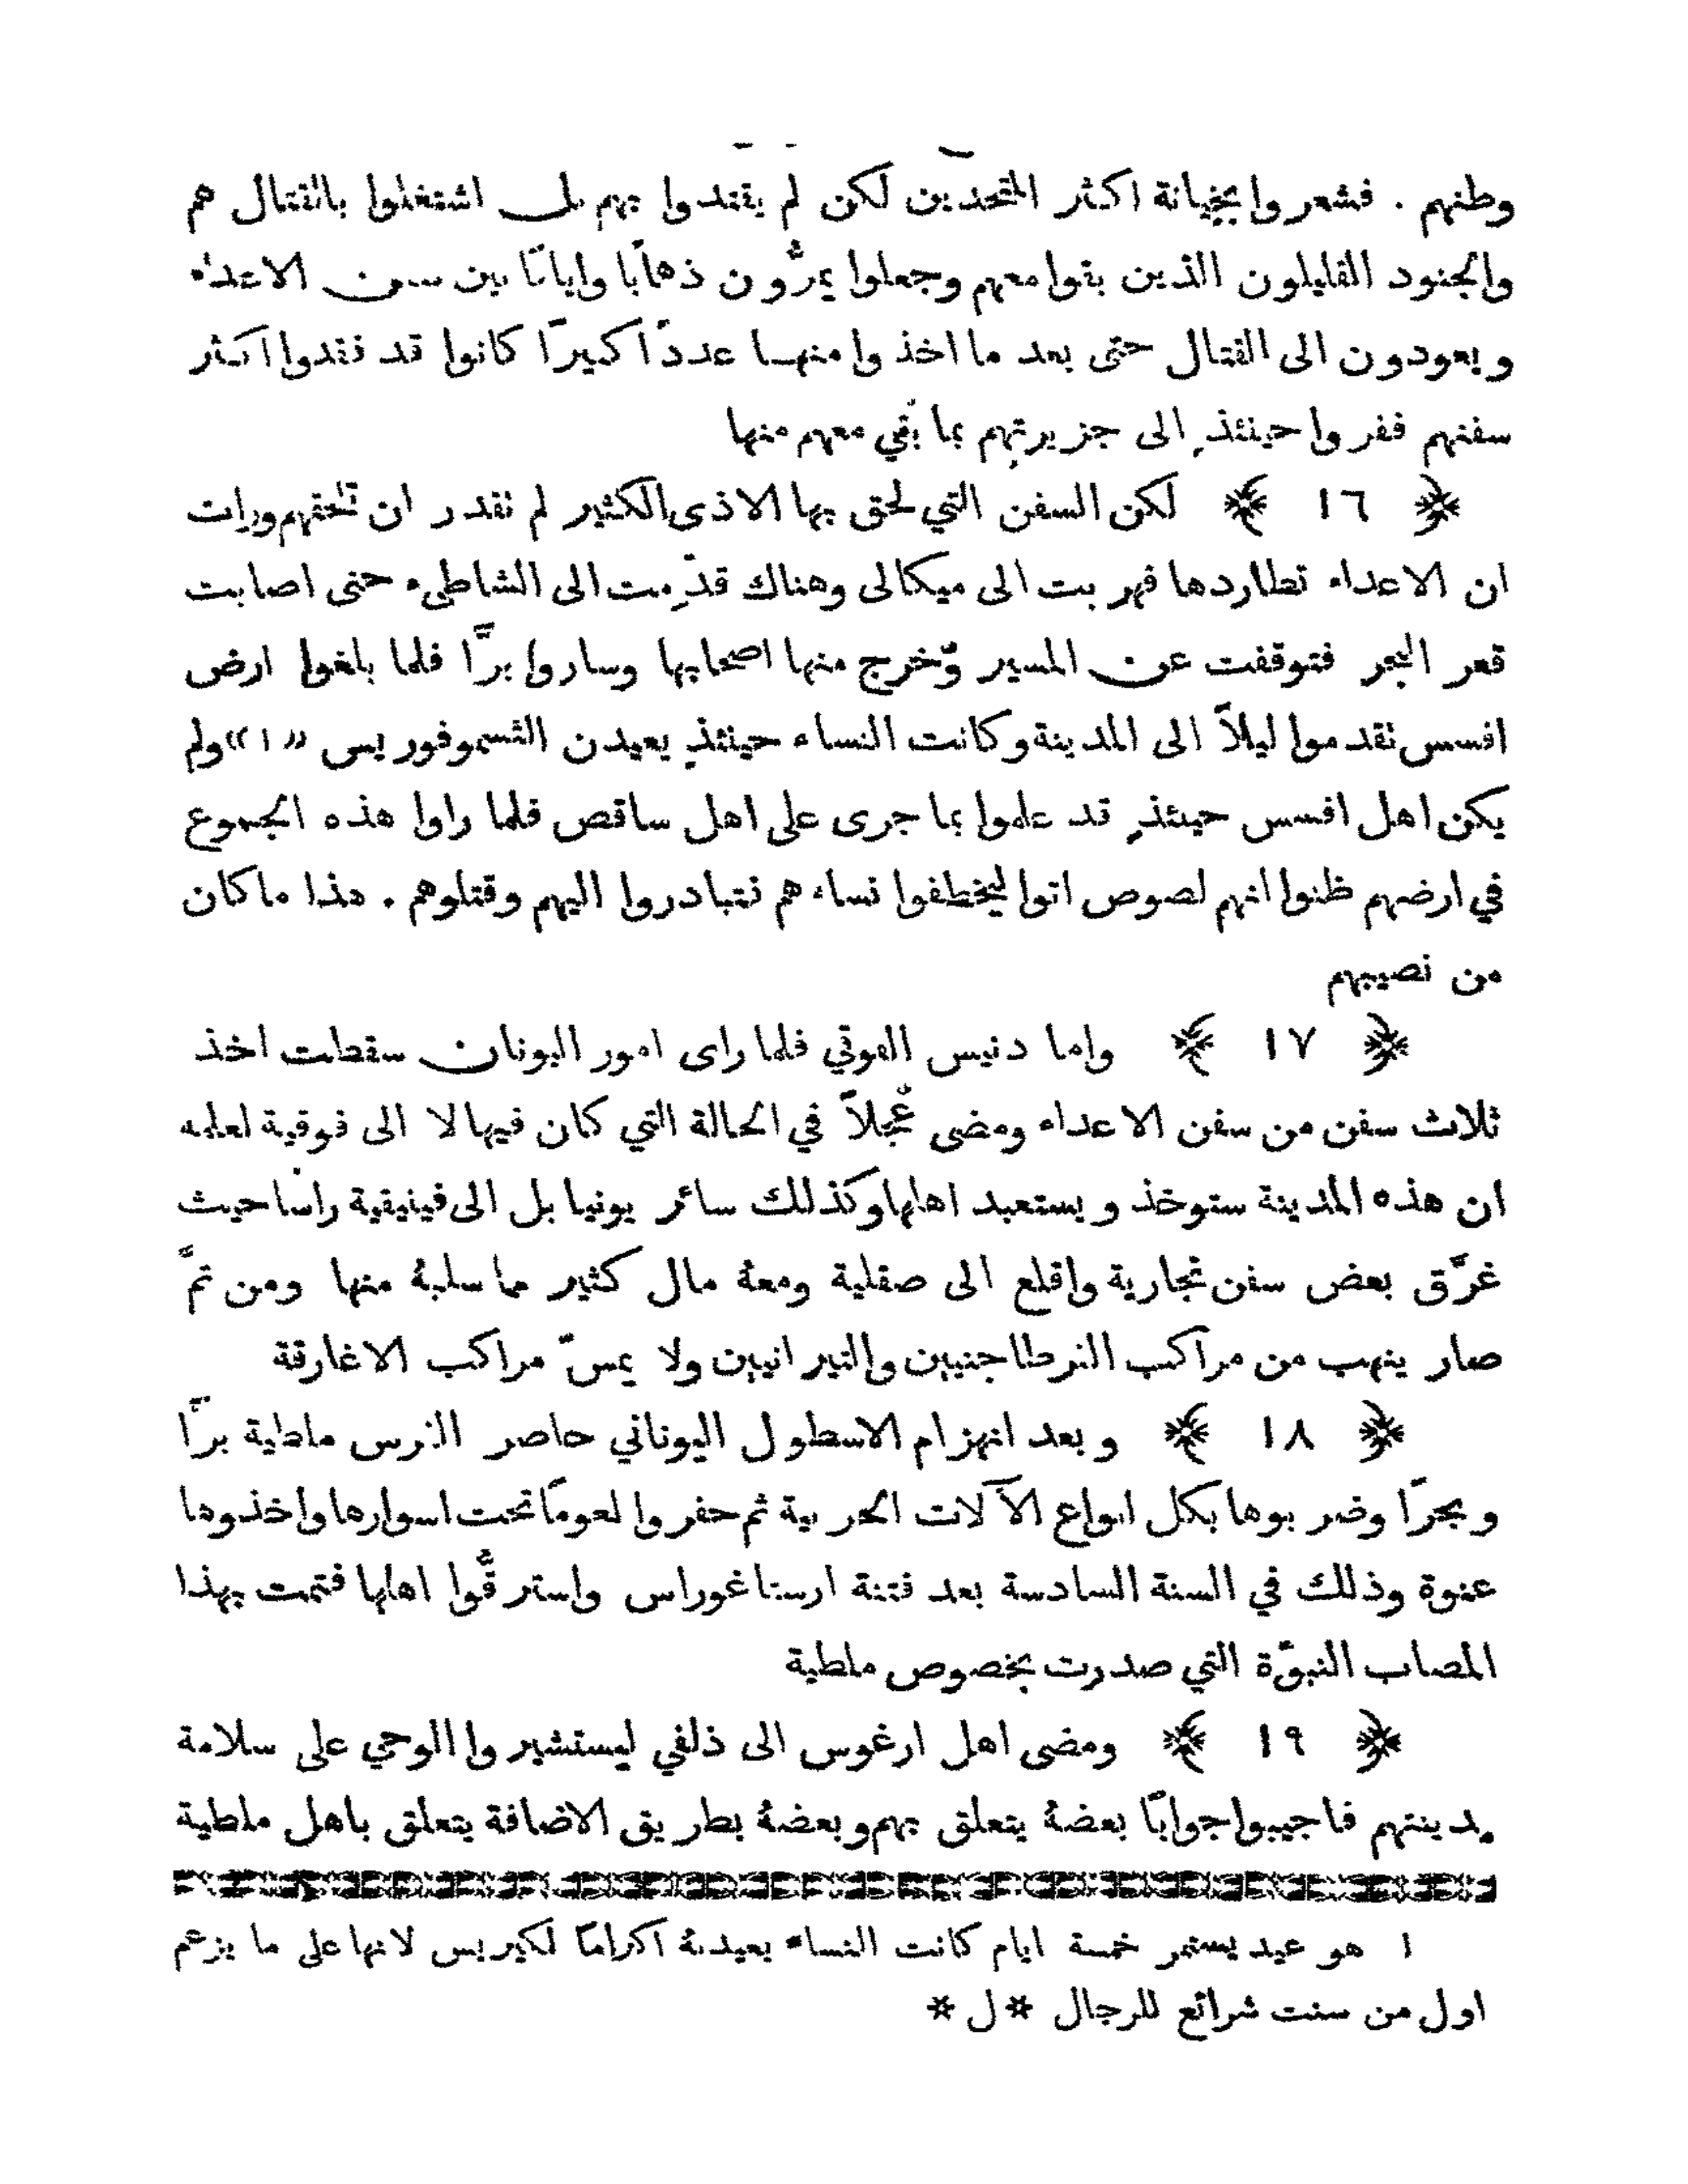 وطنهم . فشعروا بخيانة اكثر المتحدين لكن لم يقتدوا بهم بل اشتغلوا بالقتال هم
والجنود القليلون الذين بقوا معهم وجعلوا يمرُّون ذهابًا وايابًا بين سفن الاعداء
ويعودون الى القتال حتى بعد ما اخذوا منها عددًا كبيرًا كانوا قد فقدوا اكثر
سفنهم ففروا حينئذٍ الى جزيرتهم بما بقي معهم منها
﴿ ١٦ ﴾ لكن السفن التي لحق بها الاذى الكثير لم تقدر ان تلحقهم ورات
ان الاعداء تطاردها فهربت الى ميكالى وهناك قدّمت الى الشاطىء حتى اصابت
قعر البحر فتوقفت عن المسير وخرج منها اصحابها وساروا برًّا فلما بلغوا ارض
افسس تقدموا ليلاً الى المدينة وكانت النساء حينئذٍ يعيدن الثسموفوريس «١» ولم
يكن اهل افسس حينئذٍ قد علموا بما جرى على اهل ساقص فلما راوا هذه الجموع
في ارضهم ظنوا انهم لصوص اتوا ليخطفوا نساءهم فتبادروا اليهم وقتلوهم . هذا ما كان
من نصيبهم
﴿ ١٧ ﴾ واما دنيس الفوقي فلما راى امور اليونان سقطت اخذ
ثلاث سفن من سفن الاعداء ومضى عجلاً في الحالة التي كان فيها لا الى فوقية لعلمه
ان هذه المدينة ستوخذ ويستعبد اهلها وكذلك سائر يونيا بل الى فينيقية راسًا حيث
غرَّق بعض سفن تجارية واقلع الى صقلية ومعهُ مال كثير مما سلبهُ منها ومن ثمَّ
صار ينهب من مراكب القرطاجنيين والتيرانيين ولا يمسّ مراكب الاغارقة
﴿ ١٨ ﴾ وبعد انهزام الاسطول اليوناني حاصر الفرس ملطية برًّا
وبحرًا وضربوها بكل انواع الآلات الحربية ثم حفروا لغومًا تحت اسوارها واخذوها
عنوة وذلك في السنة السادسة بعد فتنة ارستاغوراس واسترقُّوا اهلها فتمت بهذا
المصاب النبوَّة التي صدرت بخصوص ملطية
﴿ ١٩ ﴾ ومضى اهل ارغوس الى ذلفي ليستشيروا الوحي على سلامة
مدينتهم فاجيبوا جوابًا بعضهُ يتعلق بهم وبعضهُ بطريق الاضافة يتعلق باهل ملطية
١ هو عيد يستمر خمسة ايام كانت النساء يعيدنهُ اكرامًا لكيريس لانها على ما يزعم
اول من سنت شرائع للرجال * ل *